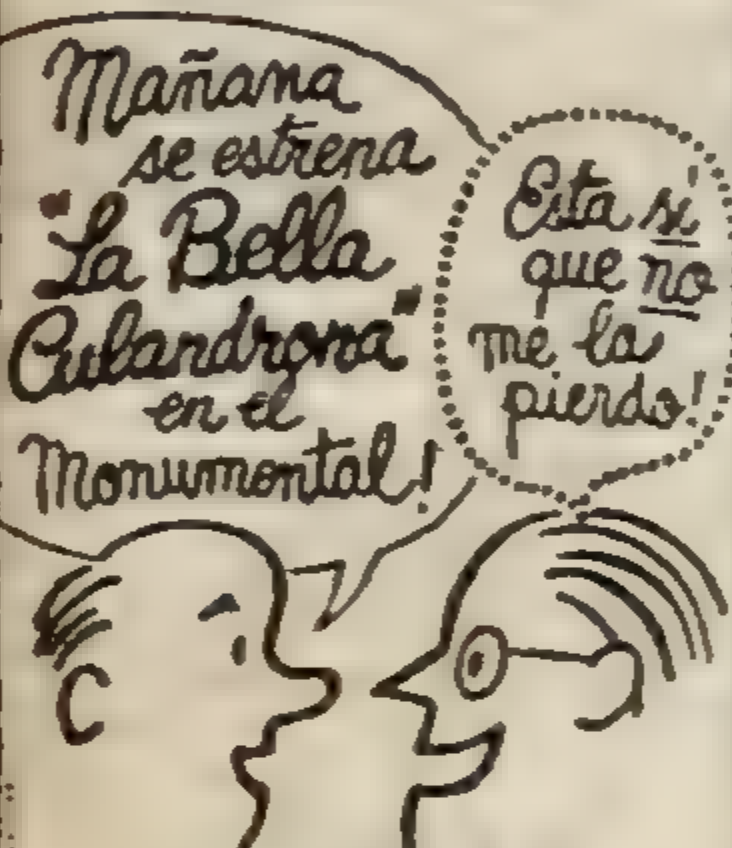 Mañana
se estrena
"La Bella
Culandrona"
en el
Monumental!
Esta sí
que no
me la
pierdo!